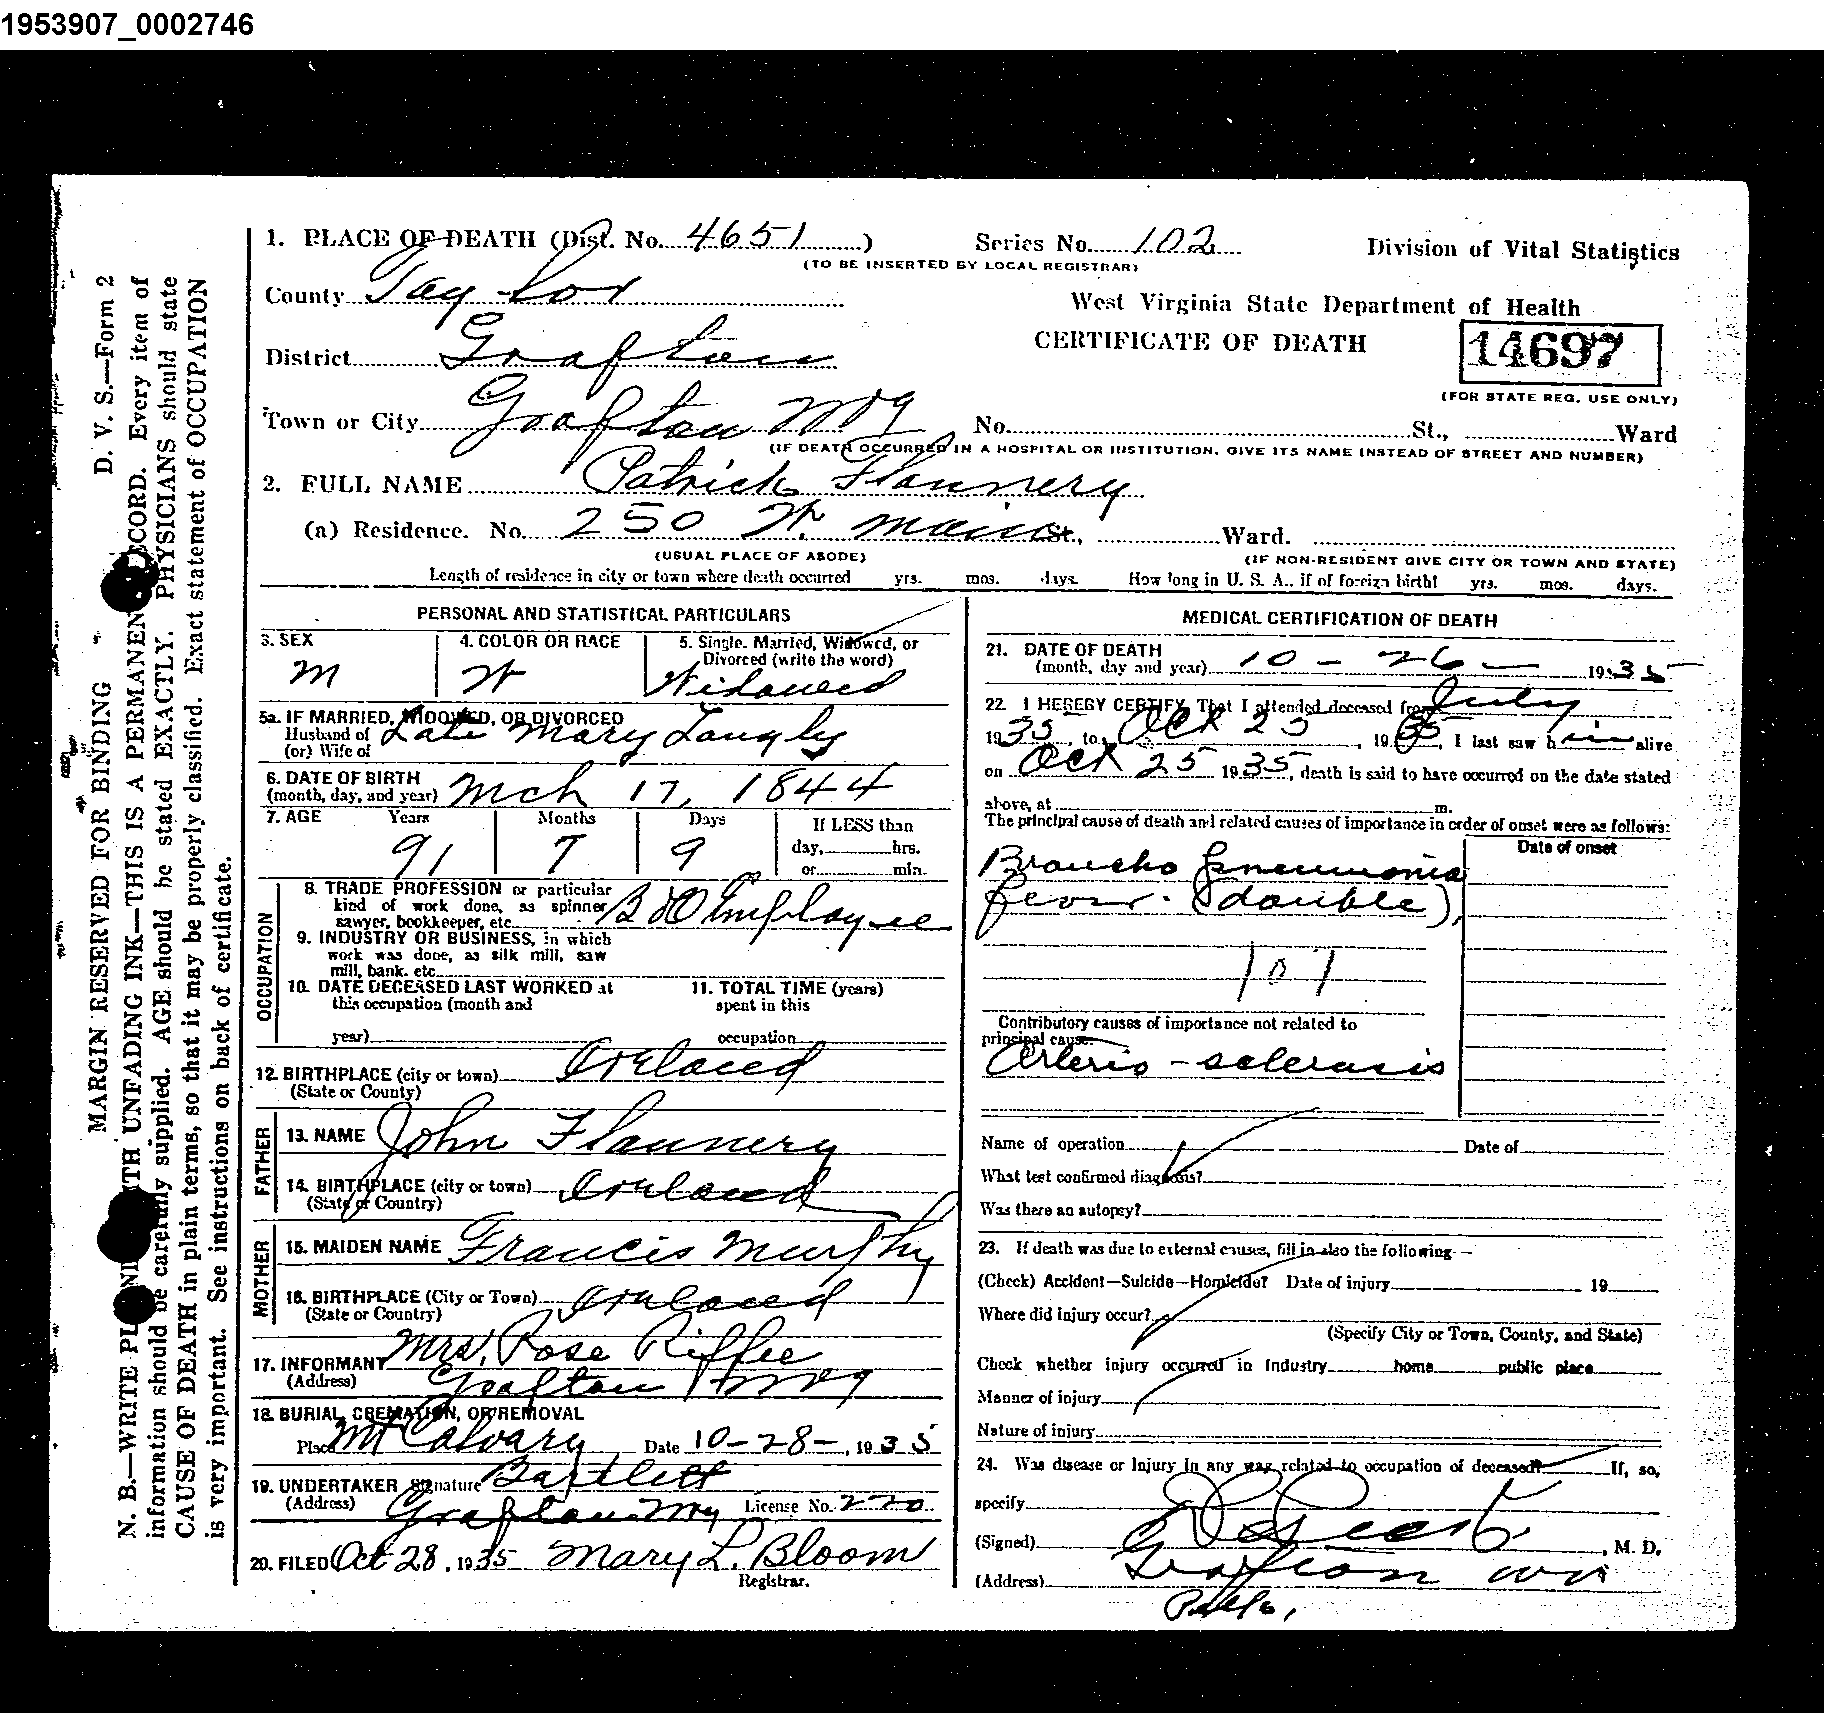 1953907_0002746
D. V. S.—Form 2
MARGIN RESERVED FOR BINDING
N. B.—WRITE PL WITH UNFADING INK—THIS IS A PERMANEN RECORD. Every item of
information should be carefully supplied. AGE should be stated EXACTLY. PHYSICIANS should state
CAUSE OF DEATH in plain terms, so that it may be properly classified. Exact statement of OCCUPATION
is very important. See instructions on back of certificate.
1. PLACE OF DEATH (Dist. No. 4651)
Series No. 102
(TO BE INSERTED BY LOCAL REGISTRAR)
Division of Vital Statistics
County Taylor
West Virginia State Department of Health
CERTIFICATE OF DEATH
14697
(FOR STATE REG. USE ONLY)
District Grafton
Town or City Grafton WVa
No. St., Ward
(IF DEATH OCCURRED IN A HOSPITAL OR INSTITUTION, GIVE ITS NAME INSTEAD OF STREET AND NUMBER)
2. FULL NAME Patrick Flannery
(a) Residence. No. 250 W. Main St., Ward.
(USUAL PLACE OF ABODE) (IF NON-RESIDENT GIVE CITY OR TOWN AND STATE)
Length of residence in city or town where death occurred yrs. mos. days. How long in U. S. A., if of foreign birth? yrs. mos. days.
PERSONAL AND STATISTICAL PARTICULARS
3. SEX
M
4. COLOR OR RACE
W
5. Single, Married, Widowed, or
Divorced (write the word)
Widowed
5a. IF MARRIED, WIDOWED, OR DIVORCED
Husband of
(or) Wife of
Late Mary Langly
6. DATE OF BIRTH
(month, day, and year) Mch 17, 1844
7. AGE Years Months Days If LESS than
91 7 9 day, hrs.
or min.
OCCUPATION
8. TRADE PROFESSION or particular
kind of work done, as spinner
sawyer, bookkeeper, etc. B & O Employee
9. INDUSTRY OR BUSINESS, in which
work was done, as silk mill, saw
mill, bank. etc.
10. DATE DECEASED LAST WORKED at
this occupation (month and
year)
11. TOTAL TIME (years)
spent in this
occupation
12. BIRTHPLACE (city or town) Ireland
(State or County)
FATHER
13. NAME John Flannery
14. BIRTHPLACE (city or town) Ireland
(State or Country)
MOTHER
15. MAIDEN NAME Francis Murphy
16. BIRTHPLACE (City or Town) Ireland
(State or Country)
17. INFORMANT Mrs. Rose Riffee
(Address) Grafton WVa
18. BURIAL, CREMATION, OR REMOVAL
Place Mt Calvary Date 10-28-, 1935
19. UNDERTAKER Signature Bartlett
(Address) Grafton WVa License No. 220
20. FILED Oct 28, 1935 Mary L. Bloom
Registrar.
MEDICAL CERTIFICATION OF DEATH
21. DATE OF DEATH
(month, day and year) 10-26- 1935
22. I HEREBY CERTIFY, That I attended deceased from July
1935, to Oct 25, 1935, I last saw him alive
on Oct 25 1935, death is said to have occurred on the date stated
above, at m.
The principal cause of death and related causes of importance in order of onset were as follows:
Date of onset
Broncho pneumonia
(double).
107
Contributory causes of importance not related to
principal cause:
Arterio-sclerosis
Name of operation Date of
What test confirmed diagnosis?
Was there an autopsy?
23. If death was due to external causes, fill in also the following—
(Check) Accident—Suicide—Homicide? Date of injury 19
Where did injury occur?
(Specify City or Town, County, and State)
Check whether injury occurred in Industry home public place
Manner of injury
Nature of injury
24. Was disease or Injury in any way related to occupation of deceased? If, so,
specify
(Signed) , M. D.
(Address) Grafton WVa